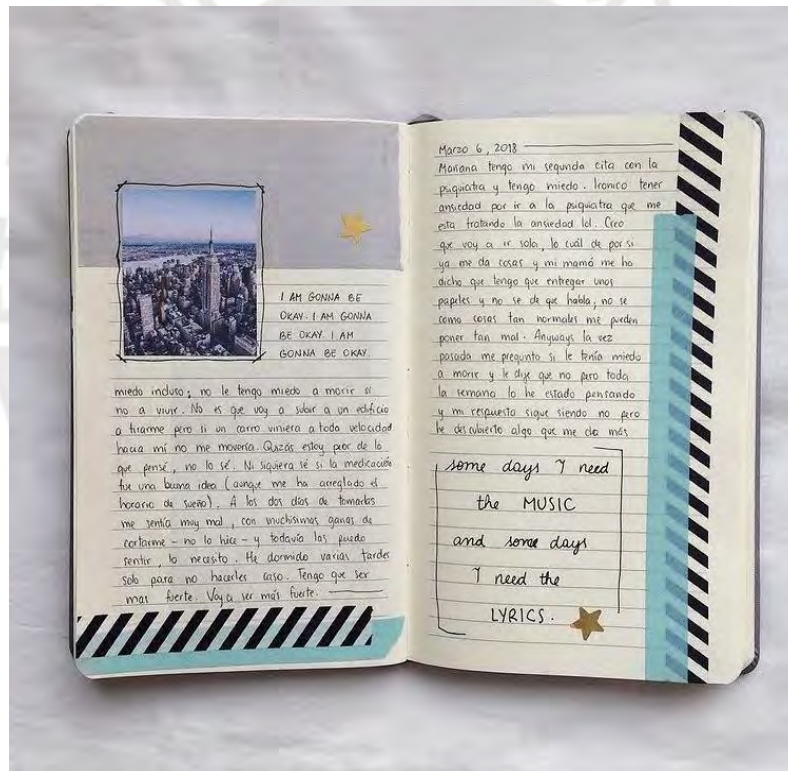 I AM GONNA BE
OKAY. I AM GONNA
BE OKAY. I AM
GONNA BE OKAY.
miedo incluso; no le tengo miedo a morir si
no a vivir. No es que voy a subir a un edificio
a tirarme pero si un carro viniera a toda velocidad
hacia mí no me movería. Quizás estoy peor de lo
que pensé, no lo sé. Ni siquiera sé si la medicación
fue una buena idea (aunque me ha arreglado el
horario de sueño). A los dos días de tomarlas
me sentía muy mal, con muchísimas ganas de
cortarme - no lo hice - y todavía las puedo
sentir, lo necesito. He dormido varias tardes
solo para no hacerles caso. Tengo que ser
mas fuerte. Voy a ser más fuerte.
Marzo 6, 2018
Mañana tengo mi segunda cita con la
psiquiatra y tengo miedo. Ironico tener
ansiedad por ir a la psiquiatra que me
esta tratando la ansiedad lol. Creo
que voy a ir solo, lo cuál de por si
ya me da cosas y mi mamá me ha
dicho que tengo que entregar unos
papeles y no se de que habla, no se
como cosas tan normales me pueden
poner tan mal. Anyways la vez
pasada me pregunto si le tenía miedo
a morir y le dije que no pero toda
la semana lo he estado pensando
y mi respuesta sigue siendo no pero
he descubierto algo que me da más
some days I need
the MUSIC
and some days
I need the
LYRICS.